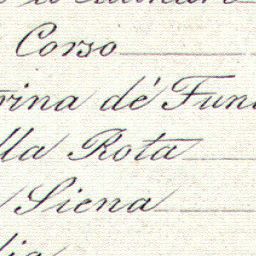 Corso
rina dè Fun
lla Rota
Siena